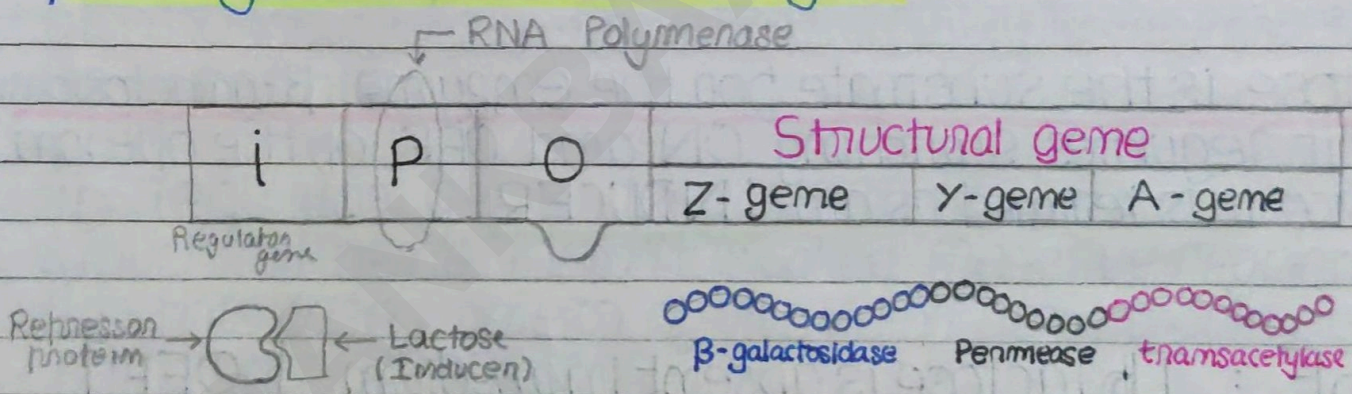 RNA Polymerase
i P O Structural gene
Z-gene Y-gene A-gene
Regulator
gene
Repressor
protein
Lactose
(Inducer)
β-galactosidase Permease transacetylase